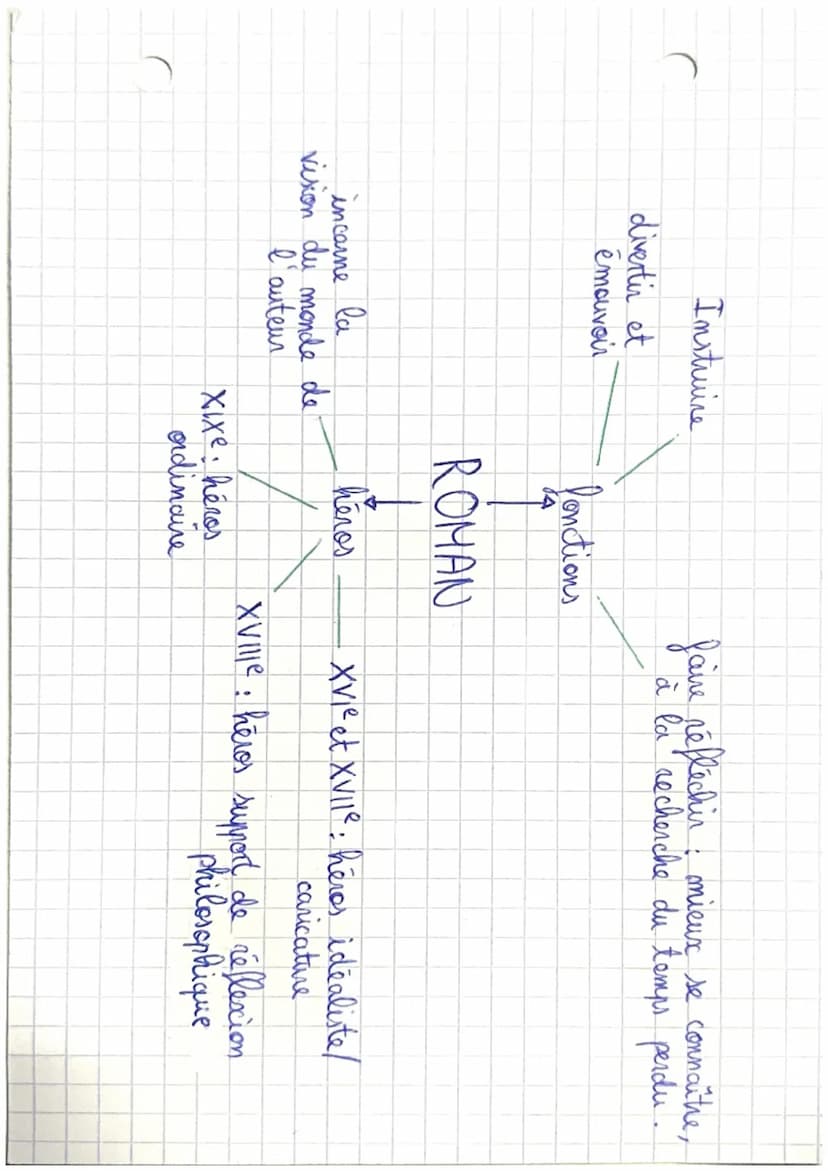 Instruire
divertir et
émouvoir
faire réfléchir : mieux se connaître,
à la recherche du temps perdu.
fonctions
ROMAN
héros
incarne la
vision du monde de
l'auteur
XVIe et XVIIe : héros idéaliste/
caricature
XIXe : héros
ordinaire
XVIIIe : héros support de réflexion
philosophique